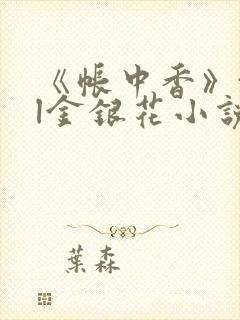 《帳中香》
|金銀花小說
葉森